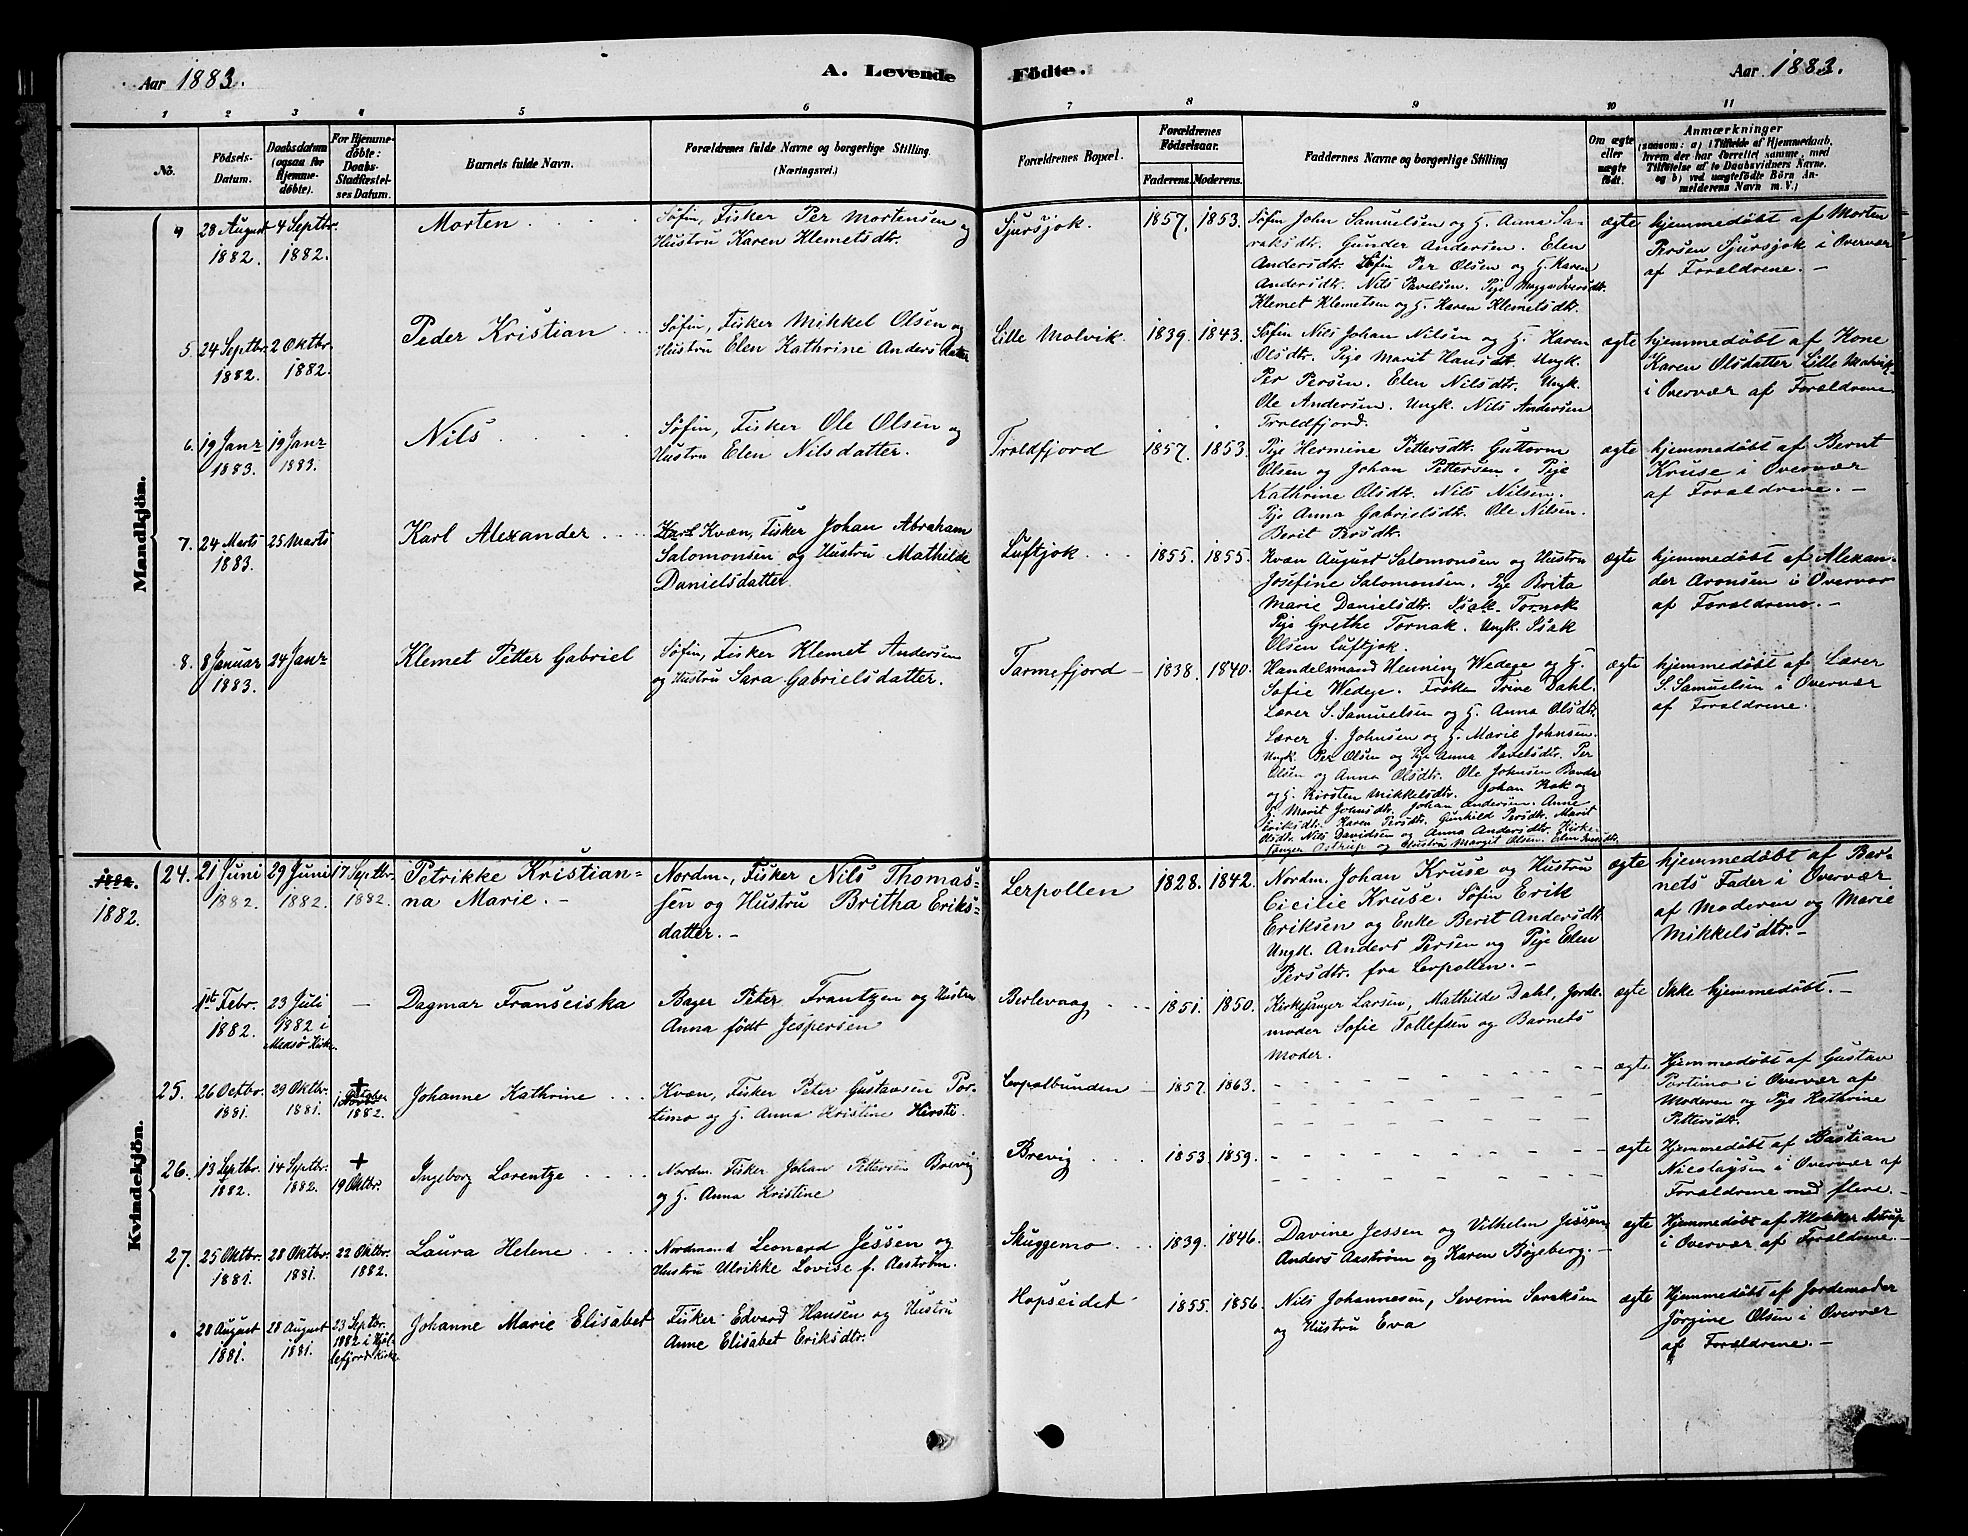 Aar 1883.
A. Levende
Fødte.
Aar 1883.
1 2 3 4 5 6 7 8 9 10 11
No.
Fødsels-
Datum.
Daabsdatum
(ogsaa for
Hjemme-
døbte).
For Hjemme-
døbte:
Daabs-
Stadfæstel-
ses Datum.
Barnets fulde Navn.
Forældrenes fulde Navne og borgerlige Stilling.
(Næringsvei.)
Forældrenes Bopæl.
Forældrenes
Fødselsaar.
Faderens. Moderens.
Faddernes Navne og borgerlige Stilling
Om ægte
eller
uægte
født.
Anmærkninger
(saasom: a) i Tilfælde af Hjemmedaab,
hvem der har forrettet samme, med
Tilføielse af to Daabsvidners Navne,
og b) ved uægtefødte Børn An-
melderens Navn m. V.)
Mandkjön.
4
28 August
1882.
4 Septbr.
1882.
Morten
Søfin, Fisker Per Mortensen og
Hustru Karen Klemetsdtr.
Sjursjok
1857. 1853.
Søfin John Samuelsen og H. Anna Sa-
raksdtr. Gunder Andersen. Elen
Andersdtr. Søfin Per Olsen og H. Karen
Andersdtr. Nils Pavelsen. Pige
Klemet Klemetsen og H. Karen Klemetsdtr.
ægte
hjemmedøbt af Morten
Persen Sjursjok i Overvær
af Forældrene. –
5.
24 Septbr.
1882.
2 Oktbr.
1882.
Peder Kristian
Søfin, Fisker Mikkel Olsen og
Hustru Elen Kathrine Andersdatter
Lille Molvik.
1839. 1843.
Søfin Nils Johan Nilsen og H. Karen
Olsdtr. Pige Marit Hansdt. Ungk.
Per Persen. Elen Nilsdtr. Ungk.
Ole Andersen. Ungk. Nils Andersen
Troldfjord.
ægte
hjemmedøbt af Kone
Karen Olsdatter Lille Molvik
i Overvær af Forældrene
6.
19 Janr
1883.
19 Janr
1883.
Nils
Søfin, Fisker Ole Olsen og
Hustru Elen Nilsdatter.
Troldfjord
1857. 1853.
Pige Hermine Pettersdtr. Guttorm
Olsen og Johan Pettersen. Pige
Kathrine Olsdtr. Nils Nilsen.
Pige Anna Gabrielsdtr. Ole Nilsen.
Berit Persdtr.
ægte
hjemmedøbt af Bernt
Kruse i Overvær
af Forældrene. –
7.
24 Marts
1883.
25 Marts
Karl Alexander
Karl Kvæn, Fisker Johan Abraham
Salomonsen og Hustru Mathilde
Danielsdatter
Luftjok
1855. 1855.
Kvæn August Salomonsen og Hustru
Josefine Salomonsen. Pige Brita
Marie Danielsdtr. Isak Tornak
Pige Grethe Tornak. Ungk. Isak
Olsen Luftjok.
ægte
hjemmedøbt af Alexan-
der Aronsen i Overvær
af Forældrene. –
8.
8 Januar
1883.
24 Janr
Klemet Petter Gabriel
Søfin, Fisker Klemet Andersen
og Hustru Sara Gabrielsdatter.
Tarmefjord
1838. 1840.
Handelsmand Henning Wedege og H.
Sofie Wedege. Frøken Trine Dahl.
Lærer S. Samuelsen og H. Anna Olsdtr.
Lærer J. Johnsen og H. Marie Johnsen.
Ungk. Per Olsen og Pige Anna Pavelsdtr. Per
Olsen og Anna Olsdtr. Ole Johnsen
og H. Kirsten Mikkelsdtr. Johan og
H. Marit Johnsdtr. Johan Andersen. Anne
Eriksdtr. Karen Persdtr. Gunhild Persdtr. Marit
Olsdtr. Nils Davidsen og Anna Andersdtr. Kirke-
sanger Østrup og Hustru Margit Olsen.
ægte
hjemmedøbt af Lærer
S. Samuelsen i Overvær
af Forældrene.
1882.
Kvindekjön.
24.
21 Juni
1882.
29 Juni
1882.
17 Septbr.
1882.
Petrikke Kristian-
na Marie. –
Nordm., Fisker Nils Thomas-
sen og Hustru Britha Eriks-
datter. –
Lerpollen
1828. 1842.
Nordm. Johan Kruse og Hustru
Cicilie Kruse. Søfin Erik
Eriksen og Enke Berit Andersdtr
Ungk. Anders Persen og Pige Elen
Persdtr. fra Lerpollen. –
ægte
hjemmedøbt af Bar-
nets Fader i Overvær
af Moderen og Marie
Mikkelsdtr. –
1ste Febr.
1882.
23 Juli
1882 i
Kirke
–
Dagmar Fransciska
Bager Peter Frantzen og Hustru
Anna født Jespersen
Berlevaag
1851. 1850.
Kirkesanger Larsen, Mathilde Dahl, Jorde-
moder Sofie Tollefsen og Barnets
Moder.
ægte
Ikke hjemmedøbt. –
25.
26 Octbr.
1881.
29 Oktbr.
1881.
+
1882.
Johanne Kathrine
Kvæn, Fisker Peter Gustavsen Por-
timo og H. Anna Kristine Hirsti.
Lerpolbunden
1857. 1863.
ægte
Hjemmedøbt af Gustav
Portimo i Overvær af
Moderen og Pige Kathrine
Pettersdtr.
26.
13 Septbr.
1882.
14 Septbr.
1882.
+
19 Oktbr.
Ingeborg Lorentze
Nordm. Fisker Johan Pettersen Brevig
og H. Anna Kristine
Brevig
1853 1859.
ægte
Hjemmedøbt af Bastian
Nicolaysen i Overvær af
Forældrene med flere. –
27.
25 Oktbr.
1881.
28 Oktbr.
1881.
22 Oktbr.
1882.
Laura Helene
Nordmand Leonard Jessen og
Hustru Ulrikke Lovise f. Aaström.
Skuggemo
1839. 1846.
Davine Jessen og Vilhelm Jessen
Anders Aaström og Karen Bøgeberg. –
ægte
Hjemmedøbt af Klokker Østrup
i Overvær af Forældrene. –
28 August
1881.
28 August
1881.
23 Septbr.
1882 i Kjøl-
lefjord Kirke
Johanne Marie Elisabet
Fisker Edvard Hansen og Hustru
Anne Elisabet Eriksdtr.
Hopseidet
1855. 1856.
Nils Johannesen, Severin Saraksen
og Hustru Eva
ægte
Hjemmedøbt af Jordemoder
Jörgine Olsen i Overvær
af Forældrene. –